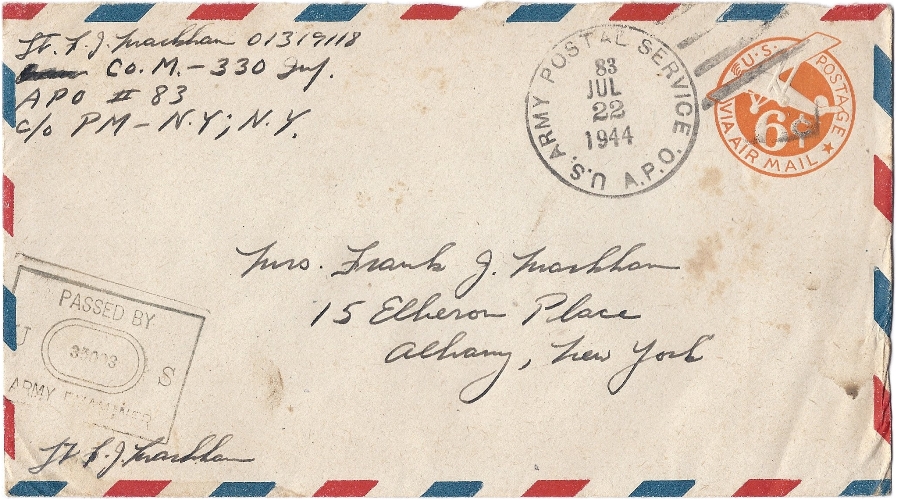 Lt. F. J. Markham 01319118
Co. M. - 330 Inf.
APO # 83
c/o PM - N.Y; N.Y.
U.S. ARMY POSTAL SERVICE A.P.O.
83
JUL
22
1944
U.S. POSTAGE
6¢
VIA AIR MAIL
Mrs. Frank J. Markham
15 Elberon Place
Albany, New York
PASSED BY
U S
ARMY EXAMINER
Lt F. J. Markham